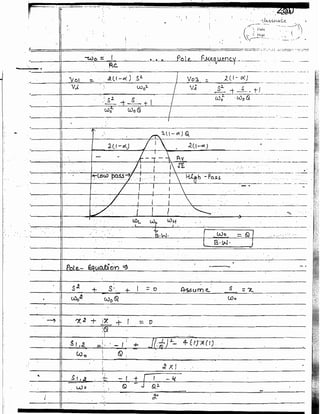 Classmate
Date
Page
ω₀ = 1/RC ... Pole Frequency.
Vo1/Vi = 2(1-α) S²/ω₀² / (S²/ω₀² + S/ω₀Q + 1)
Vo3/Vi = 2(1-α) / (S²/ω₀² + S/ω₀Q + 1)
2(1-α)Q
2(1-α) 2(1-α)
Av/√2
Low pass High-Pass
ω_L ω₀ ω_H
B.W.
ω₀/B.W. = Q
Pole-Equation ⇒
S²/ω₀² + S/ω₀Q + 1 = 0 Assume S/ω₀ = x
→ x² + x/Q + 1 = 0
S1,2/ω₀ = -1/Q ± √((1/Q)² - 4(1)x(1)) / 2x1
S1,2/ω₀ = -1/Q ± √(1/Q² - 4) / 2